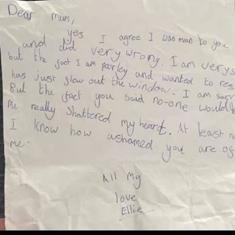 Dear mum,
yes I agree I was mean to you
and did very wrong. I am very s
but the fact I am and wanted to res
has just flew out the window. I am sor
But the fact you said no-one would
Me really shattered my heart. At least n
I know how ashamed you are of
me.
All My
love
Ellie